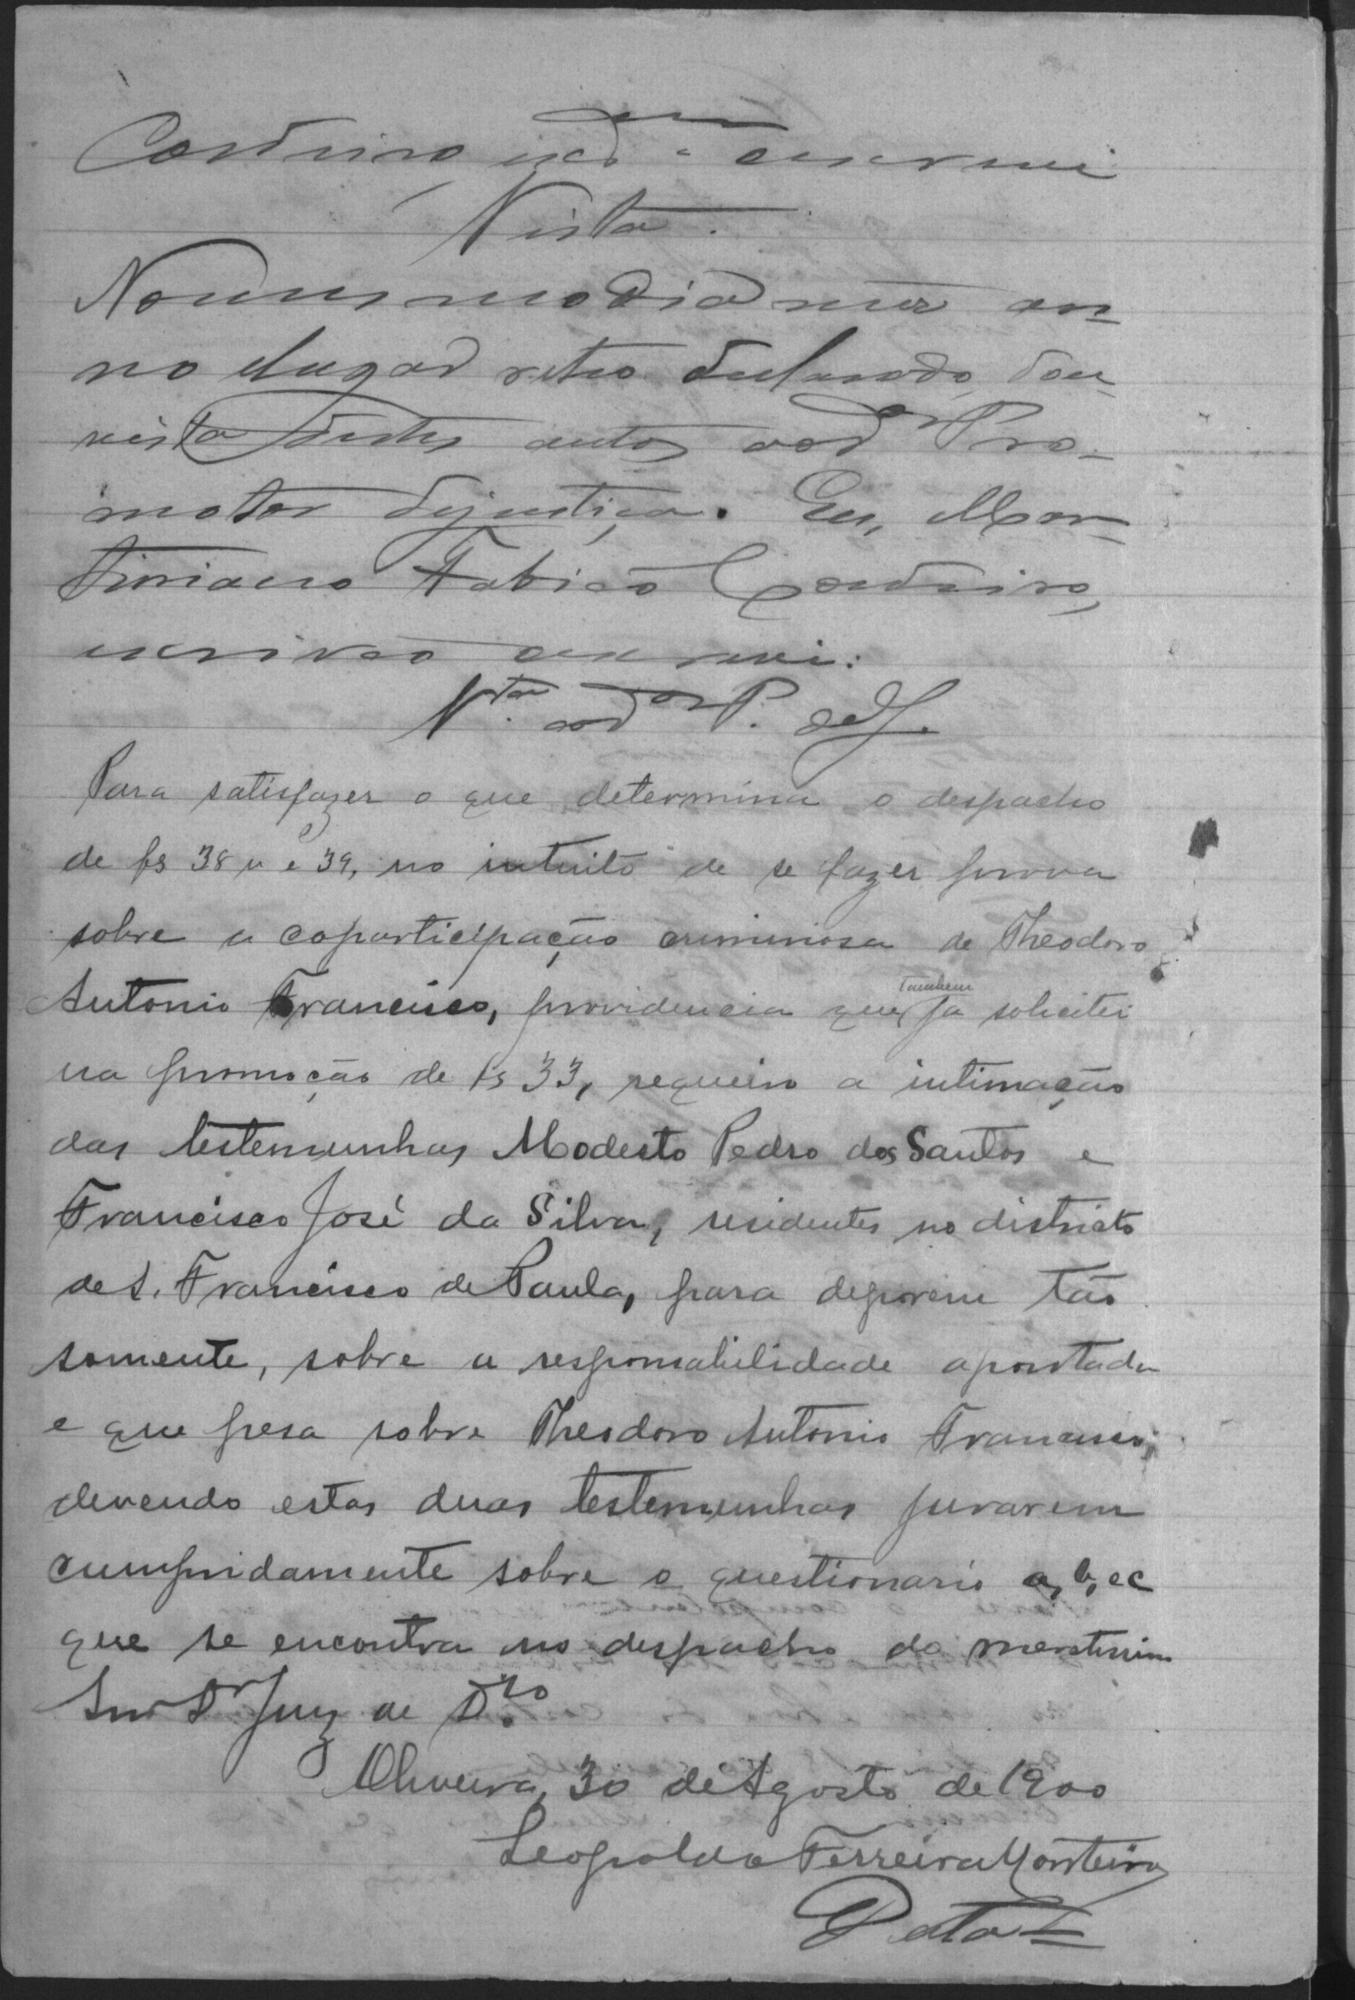 Cordeiro, escrivão o escrevi
Vista.
No mesmo dia mez an-
no e lugar retro declarado, dou
vista destes autos ao dor Pro-
motor dejustiça. Eu, Mar-
tiniano Fabião Cordeiro,
escrivão o escrevi:
Vta. ao dor P. de J.
Para satisfazer o que determina o despacho
de fs 38 v e 39, no intuito de se fazer prova
sobre a coparticipação criminosa de Theodoro
Antonio Francisco, providencia que Tambem ja solicitei
na promoção de fs 33, requeiro a intimação
das testemunhas Modesto Pedro dos Santos e
Francisco José da Silva, residentes no districto
de S. Francisco de Paula, para deporem tão
somente, sobre a responsabilidade apontada
e que pesa sobre Theodoro Antonio Francisco;
devendo estas duas testemunhas jurarem
cumpridamente sobre o questionario a, b, e c
que se encontra no despacho do meretissimo
Snr Dr Juiz de Dro.
Oliveira, 30 de Agosto de 1900
Leopoldo Ferreira Monteiro
Data